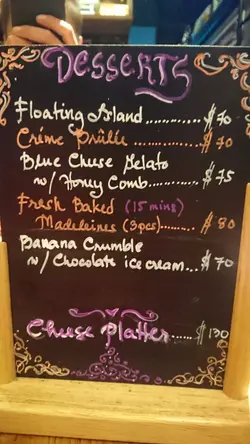 Desserts
Floating Island.............$70
Créme Brûlée............$70
Blue Cheese Gelato
w/ Honey Comb..........$75
Fresh Baked (15 mins)
Madeleines (3pcs).........$80
Banana Crumble
w/ Chocolate ice cream...$70
Cheese Platter.......$130